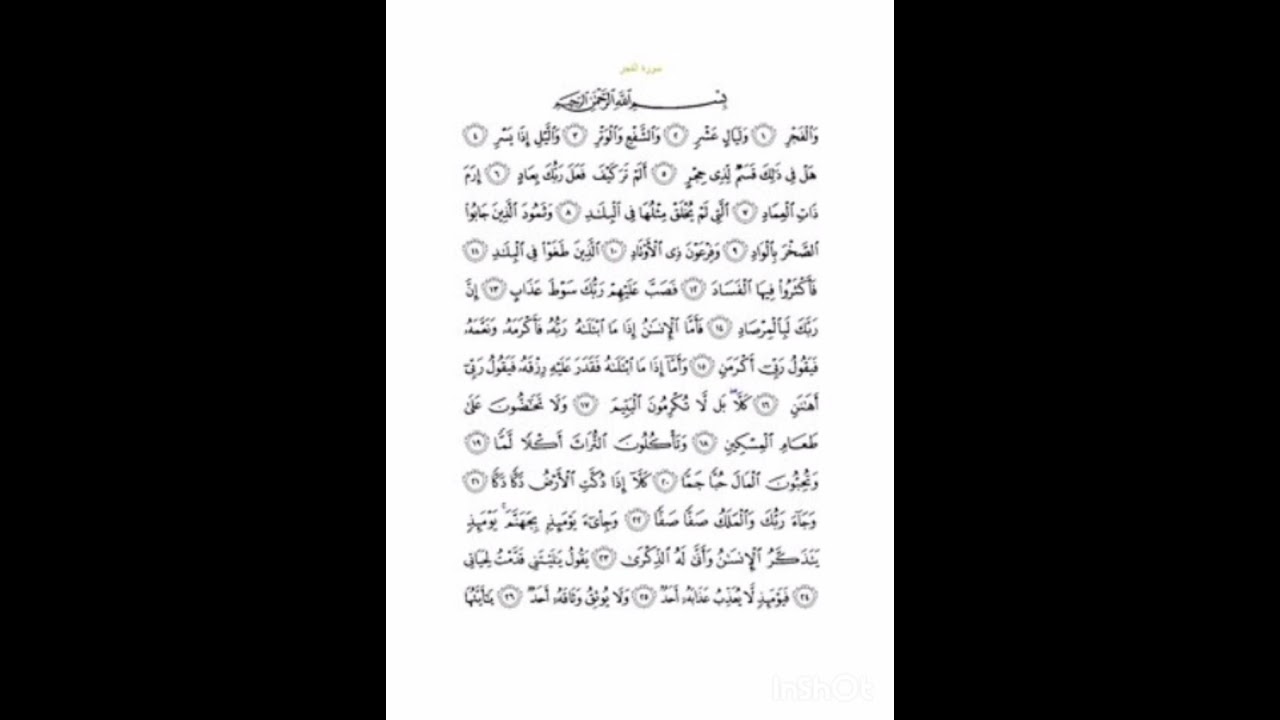 سورة الفجر
بِسْمِ ٱللَّهِ ٱلرَّحْمَٰنِ ٱلرَّحِيمِ
وَٱلْفَجْرِ ١ وَلَيَالٍ عَشْرٍ ٢ وَٱلشَّفْعِ وَٱلْوَتْرِ ٣ وَٱلَّيْلِ إِذَا يَسْرِ ٤
هَلْ فِي ذَٰلِكَ قَسَمٌ لِّذِي حِجْرٍ ٥ أَلَمْ تَرَ كَيْفَ فَعَلَ رَبُّكَ بِعَادٍ ٦ إِرَمَ
ذَاتِ ٱلْعِمَادِ ٧ ٱلَّتِي لَمْ يُخْلَقْ مِثْلُهَا فِي ٱلْبِلَٰدِ ٨ وَثَمُودَ ٱلَّذِينَ جَابُوا۟
ٱلصَّخْرَ بِٱلْوَادِ ٩ وَفِرْعَوْنَ ذِي ٱلْأَوْتَادِ ١٠ ٱلَّذِينَ طَغَوْا۟ فِي ٱلْبِلَٰدِ ١١
فَأَكْثَرُوا۟ فِيهَا ٱلْفَسَادَ ١٢ فَصَبَّ عَلَيْهِمْ رَبُّكَ سَوْطَ عَذَابٍ ١٣ إِنَّ
رَبَّكَ لَبِٱلْمِرْصَادِ ١٤ فَأَمَّا ٱلْإِنسَٰنُ إِذَا مَا ٱبْتَلَىٰهُ رَبُّهُۥ فَأَكْرَمَهُۥ وَنَعَّمَهُۥ
فَيَقُولُ رَبِّيٓ أَكْرَمَنِ ١٥ وَأَمَّآ إِذَا مَا ٱبْتَلَىٰهُ فَقَدَرَ عَلَيْهِ رِزْقَهُۥ فَيَقُولُ رَبِّيٓ
أَهَٰنَنِ ١٦ كَلَّا ۖ بَل لَّا تُكْرِمُونَ ٱلْيَتِيمَ ١٧ وَلَا تَحَٰٓضُّونَ عَلَىٰ
طَعَامِ ٱلْمِسْكِينِ ١٨ وَتَأْكُلُونَ ٱلتُّرَاثَ أَكْلًا لَّمًّا ١٩
وَتُحِبُّونَ ٱلْمَالَ حُبًّا جَمًّا ٢٠ كَلَّآ إِذَا دُكَّتِ ٱلْأَرْضُ دَكًّا دَكًّا ٢١
وَجَآءَ رَبُّكَ وَٱلْمَلَكُ صَفًّا صَفًّا ٢٢ وَجِا۟يٓءَ يَوْمَئِذٍۭ بِجَهَنَّمَ ۚ يَوْمَئِذٍ
يَتَذَكَّرُ ٱلْإِنسَٰنُ وَأَنَّىٰ لَهُ ٱلذِّكْرَىٰ ٢٣ يَقُولُ يَٰلَيْتَنِي قَدَّمْتُ لِحَيَاتِي
٢٤ فَيَوْمَئِذٍ لَّا يُعَذِّبُ عَذَابَهُۥٓ أَحَدٌ ٢٥ وَلَا يُوثِقُ وَثَاقَهُۥٓ أَحَدٌ ٢٦ يَٰٓأَيَّتُهَا
InShOt